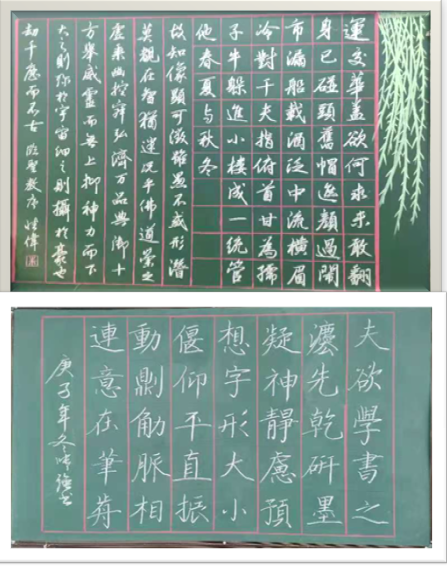 運交華蓋欲何求未敢翻
身已碰頭舊帽遮顏過鬧
市漏船載酒泛中流橫眉
冷對千夫指俯首甘為孺
子牛躲進小樓成一統管
他春夏与秋冬
故知像顯可徵雖愚不惑形潛
莫覩在智猶迷況乎佛道崇
虛乘幽控寂弘濟萬品典御十
方舉威靈而無上抑神力而下
大之則彌於宇宙細之則攝於毫
劫千應而不古 臨聖教序 偉
夫欲學書之
灋先乾研墨
凝神靜慮預
想字形大小
偃仰平直振
動則筋脈相
連意在筆前
庚子年冬 書